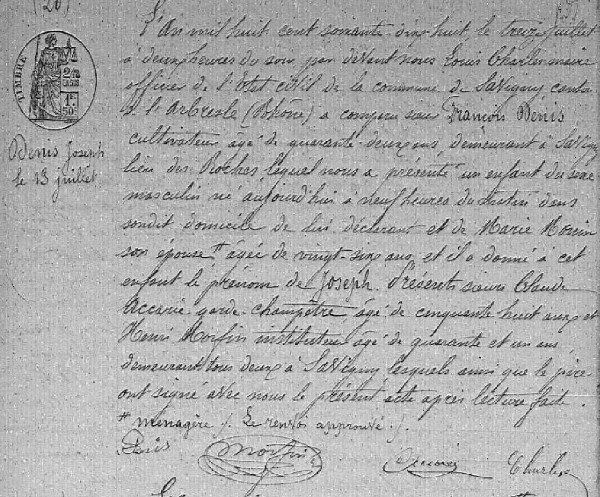 (20)
TIMBRE
Denis Joseph
le 13 juillet
L'An mil huit cent soixante dix huit, le treize juillet
à deux heures du soir par devant nous Louis Charles maire
officier de l'Etat civil de la commune de Savigny canton
de l'Arbresle (Rhône) a comparu sieur François Denis
cultivateur âgé de quarante deux ans, demeurant à Savigny
lieu des Roches, lequel nous a présenté un enfant du sexe
masculin né aujourd'hui à neuf heures du matin dans
sondit domicile de lui déclarant et de Marie
son épouse # âgée de vingt-six ans, et il a donné à cet
enfant le prénom de Joseph. Présents sieurs Claude
Accarie garde-champêtre âgé de cinquante huit ans et
Henri Morfin instituteur âgé de quarante et un ans
demeurant tous deux à Savigny lesquels ainsi que le père
ont signé avec nous le présent acte après lecture faite.
# ménagère /. Le renvoi approuvé ./.
Denis Morfin Accarie Charles